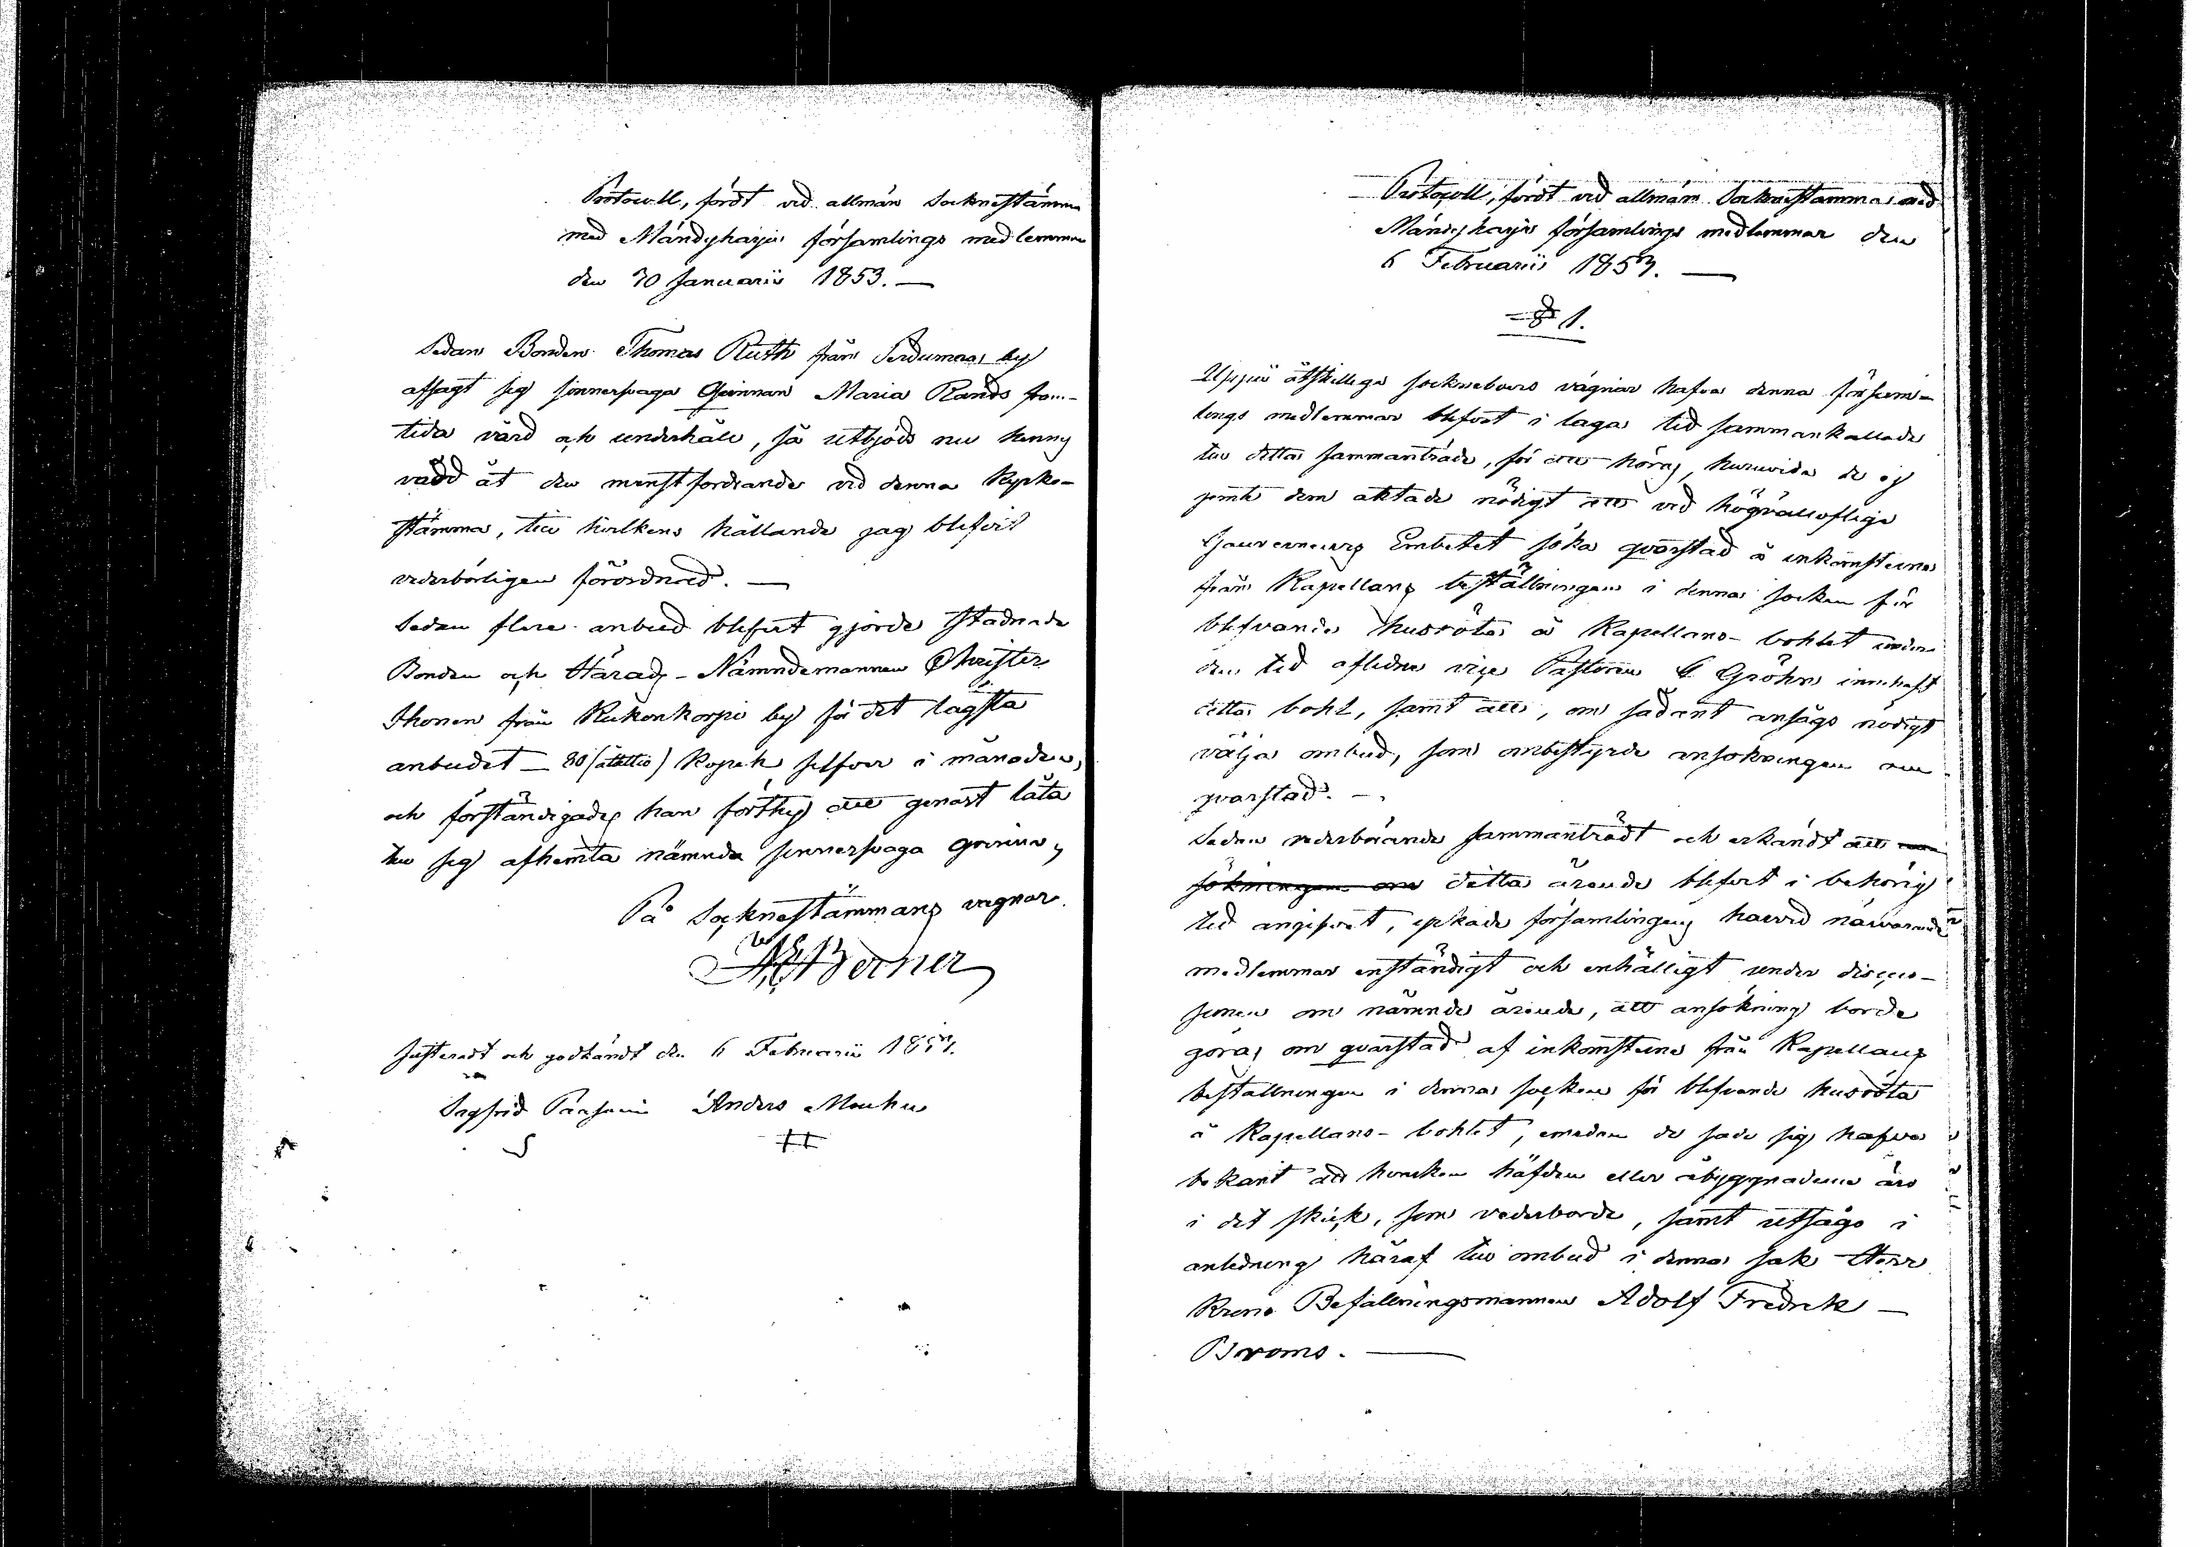 Protocoll, fördt vid allmän Socknestämma
med Mändyharju församlings medlemmar
den 30 Januarii 1853. —
Sedan Bonden Thomas Ruth från by
afsagt sig sinnessvaga Qvinnan Maria Rands fram-
tida vård och underhåll, så utbjöds nu hennes
vård åt den minstfordrande vid denna Kyrko-
stämma, till hvilkens hållande jag blifvit
vederbörligen förordnad. —
Sedan flere anbud blifvit gjorde stadnade
Bonden och Härads-Nämndemannen Christer
Ihonen från Kukonkorpi by för det lägsta
anbudet — 80 (åttatio) Kopek silfver i månaden,
och förständigades han förthy att genast låta
till sig afhemta nämnda sinnessvaga qvinna,
På Socknestämmans vägnar.
Berner
Justeradt och godkändt den 6 Februarii 1853.
Sigfrid Anders
Protocoll, fördt vid allmän Socknestämma med
Mändyharju församlings medlemmar den
6 Februarii 1853. —
§ 1.
Uppå åtskillige sockneboers vägnar hafva denna försam-
lings medlemmar blifvit i laga tid sammankallade
till detta sammanträde, för att höras, huruvida de ej
jemte dem aktade nödigt att vid högvällofliga
Gouverneurs Embetet söka qvarstad å inkomsterna
från Kapellans beställningen i denna socken för
blifvande husröta å Kapellans-bohlet under
den tid aflidne vice Pastoren G Gröhn innehaft
detta bohl, samt att, om sådant ansågs nödigt
välja ombud, som ombestyrde ansökningen om
qvarstad. —
Sedan vederbörande sammanträdt och erkändt att
sökningen om detta ärende blifvit i behörig
tid angifvet, yrkade församlingens härvid närvarande
medlemmar enständigt och enhälligt under discus-
sionen om nämnde ärende, att ansökning borde
göras om qvarstad af inkomsterna från Kapellans
beställningen i denna socken för blifvande husröta
å Kapellans-bohlet, emedan de sade sig hafva
bekant att hvarken häfden eller åbyggnaderne äro
i det skick, som vederborde, samt utsågo i
anledning häraf till ombud i denna sak Herr
Krono Befallningsmannen Adolf Fredrik —
Broms. —